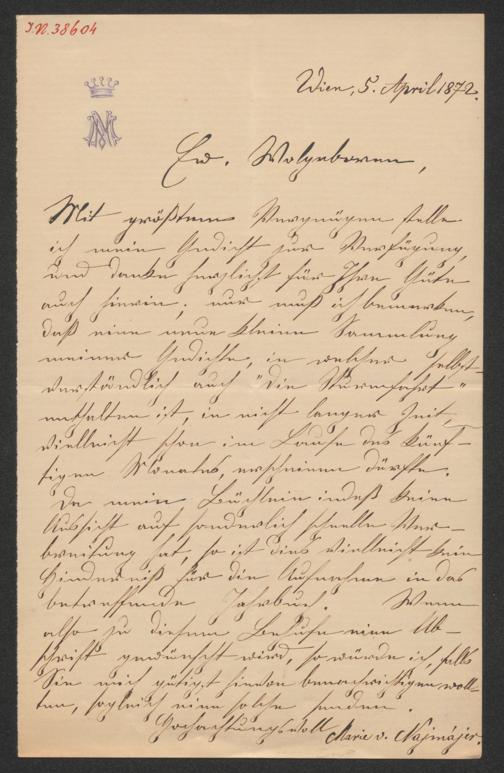 J.N. 38604
Wien, 5. April 1872.
Ew. Wolgeboren,
Mit größtem Vergnügen stelle
ich mein Gedicht zur Verfügung,
und danke herzlichst für Ihre Güte
auch hierin; nur muß ich bemerken,
daß eine neue kleine Sammlung
meiner Gedichte, in welcher selbst-
verständlich auch "die Sturmfahrt"
enthalten ist, in nicht langer Zeit,
vielleicht schon im Laufe des künf-
tigen Monates, erscheinen dürfte.
Da mein Büchlein indeß keine
Aussicht auf sonderlich schnelle Ver-
breitung hat, so ist dies vielleicht kein
Hinderniß für die Aufnahme in das
betreffende Jahrbuch. Wenn
also zu diesem Behufe eine Ab-
schrift gewünscht wird, so würde ich, falls
Sie mich gütigst hievon benachrichtigen woll-
ten, sogleich eine solche senden.
Hochachtungsvoll
Marie v. Najmájer.